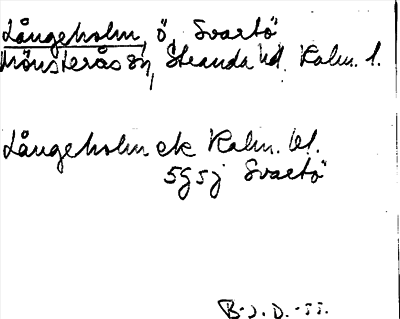 Långeholm, ö, Svartö
Mönsterås sn, Stranda hd. Kalm. l.
Långeholm ek Kalm. bl.
5G5j Svartö
B-J. D. -55.